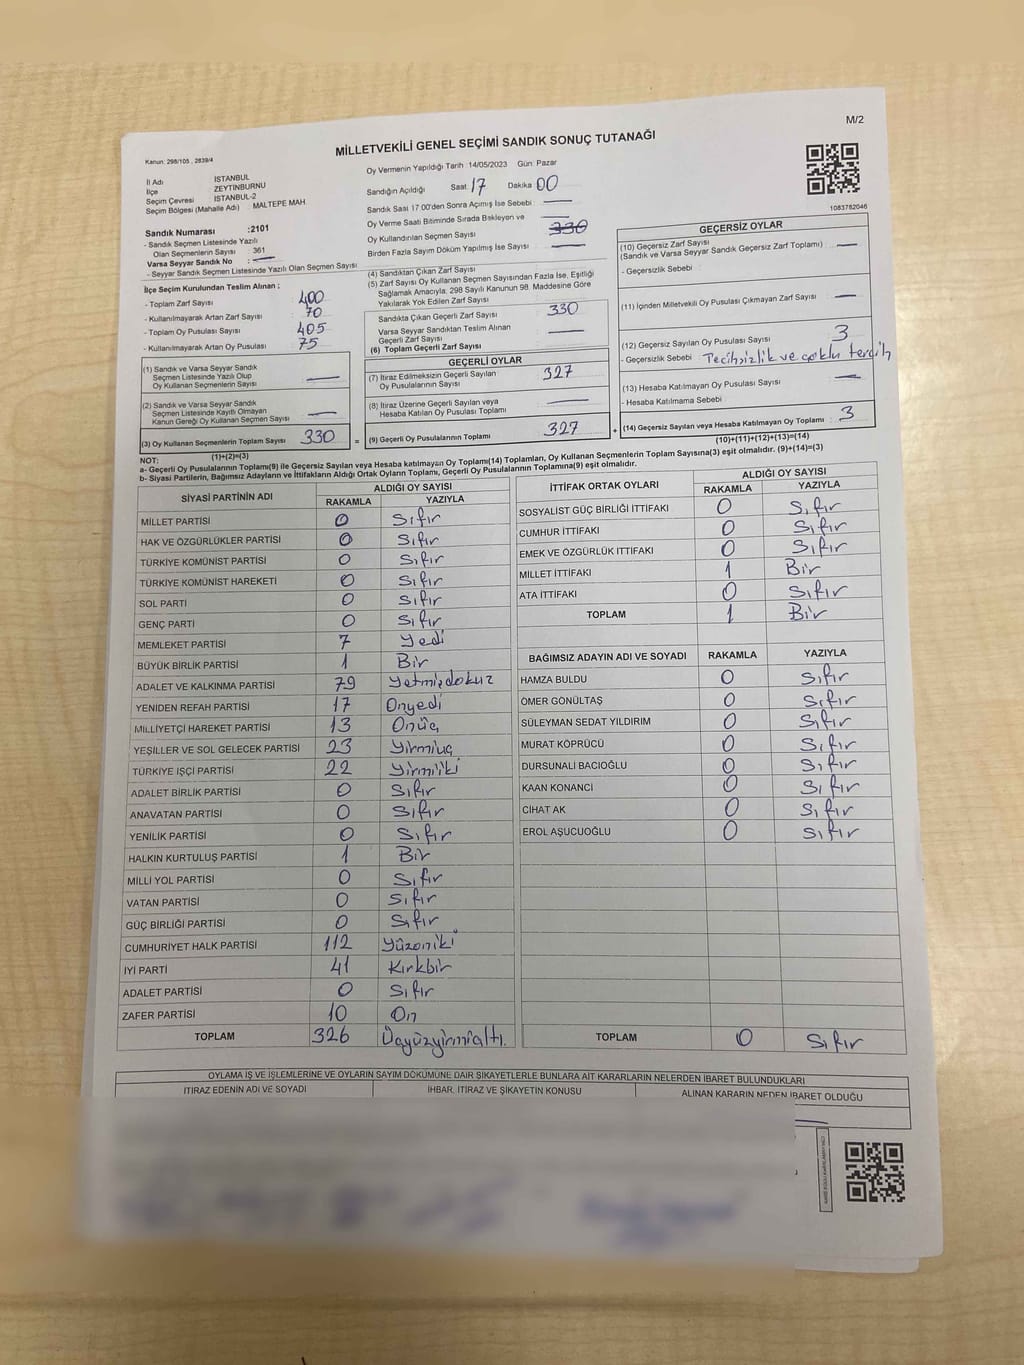 M/2
MİLLETVEKİLİ GENEL SEÇİMİ SANDIK SONUÇ TUTANAĞI
Kanun: 298/105 , 2839/4
İl Adı İSTANBUL
İlçe ZEYTİNBURNU
Seçim Çevresi İSTANBUL-2
Seçim Bölgesi (Mahalle Adı) : MALTEPE MAH.
Oy Vermenin Yapıldığı Tarih 14/05/2023 Gün: Pazar
Sandığın Açıldığı Saat 17 Dakika 00
Sandık Saat 17.00'den Sonra Açılmış İse Sebebi
Oy Verme Saati Bitiminde Sırada Bekleyen ve
Oy Kullandırılan Seçmen Sayısı 330
Birden Fazla Sayım Döküm Yapılmış İse Sayısı
1083782046
Sandık Numarası :2101
- Sandık Seçmen Listesinde Yazılı
Olan Seçmenlerin Sayısı : 361
Varsa Seyyar Sandık No :
- Seyyar Sandık Seçmen Listesinde Yazılı Olan Seçmen Sayısı
İlçe Seçim Kurulundan Teslim Alınan ;
- Toplam Zarf Sayısı 400
- Kullanılmayarak Artan Zarf Sayısı 70
- Toplam Oy Pusulası Sayısı 405
- Kullanılmayarak Artan Oy Pusulası 75
(1) Sandık ve Varsa Seyyar Sandık
Seçmen Listesinde Yazılı Olup
Oy Kullanan Seçmenlerin Sayısı
(2) Sandık ve Varsa Seyyar Sandık
Seçmen Listesinde Kayıtlı Olmayan
Kanun Gereği Oy Kullanan Seçmen Sayısı
(3) Oy Kullanan Seçmenlerin Toplam Sayısı 330 =
(1)+(2)=(3)
(4) Sandıktan Çıkan Zarf Sayısı
(5) Zarf Sayısı Oy Kullanan Seçmen Sayısından Fazla İse, Eşitliği
Sağlamak Amacıyla, 298 Sayılı Kanunun 98. Maddesine Göre
Yakılarak Yok Edilen Zarf Sayısı
Sandıkta Çıkan Geçerli Zarf Sayısı 330
Varsa Seyyar Sandıktan Teslim Alınan
Geçerli Zarf Sayısı
(6) Toplam Geçerli Zarf Sayısı
GEÇERLİ OYLAR
(7) İtiraz Edilmeksizin Geçerli Sayılan
Oy Pusulalarının Sayısı 327
(8) İtiraz Üzerine Geçerli Sayılan veya
Hesaba Katılan Oy Pusulası Toplamı
(9) Geçerli Oy Pusulalarının Toplamı 327 +
GEÇERSİZ OYLAR
(10) Geçersiz Zarf Sayısı
(Sandık ve Varsa Seyyar Sandık Geçersiz Zarf Toplamı) :
- Geçersizlik Sebebi :
(11) İçinden Milletvekili Oy Pusulası Çıkmayan Zarf Sayısı
(12) Geçersiz Sayılan Oy Pusulası Sayısı 3
- Geçersizlik Sebebi : Tecihsizlik ve çoklu tercih
(13) Hesaba Katılmayan Oy Pusulası Sayısı
- Hesaba Katılmama Sebebi :
(14) Geçersiz Sayılan veya Hesaba Katılmayan Oy Toplamı : 3
(10)+(11)+(12)+(13)=(14)
NOT:
a- Geçerli Oy Pusulalarının Toplamı(9) ile Geçersiz Sayılan veya Hesaba katılmayan Oy Toplamı(14) Toplamları, Oy Kullanan Seçmenlerin Toplam Sayısına(3) eşit olmalıdır. (9)+(14)=(3)
b- Siyasi Partilerin, Bağımsız Adayların ve İttifakların Aldığı Ortak Oyların Toplamı, Geçerli Oy Pusulalarının Toplamına(9) eşit olmalıdır.
SİYASİ PARTİNİN ADI ALDIĞI OY SAYISI
RAKAMLA YAZIYLA
MİLLET PARTİSİ 0 Sıfır
HAK VE ÖZGÜRLÜKLER PARTİSİ 0 Sıfır
TÜRKİYE KOMÜNİST PARTİSİ 0 Sıfır
TÜRKİYE KOMÜNİST HAREKETİ 0 Sıfır
SOL PARTİ 0 Sıfır
GENÇ PARTİ 0 Sıfır
MEMLEKET PARTİSİ 7 Yedi
BÜYÜK BİRLİK PARTİSİ 1 Bir
ADALET VE KALKINMA PARTİSİ 79 Yetmişdokuz
YENİDEN REFAH PARTİSİ 17 Onyedi
MİLLİYETÇİ HAREKET PARTİSİ 13 Onüç
YEŞİLLER VE SOL GELECEK PARTİSİ 23 Yirmiüç
TÜRKİYE İŞÇİ PARTİSİ 22 Yirmiiki
ADALET BİRLİK PARTİSİ 0 Sıfır
ANAVATAN PARTİSİ 0 Sıfır
YENİLİK PARTİSİ 0 Sıfır
HALKIN KURTULUŞ PARTİSİ 1 Bir
MİLLİ YOL PARTİSİ 0 Sıfır
VATAN PARTİSİ 0 Sıfır
GÜÇ BİRLİĞİ PARTİSİ 0 Sıfır
CUMHURİYET HALK PARTİSİ 112 Yüzoniki
İYİ PARTİ 41 Kırkbir
ADALET PARTİSİ 0 Sıfır
ZAFER PARTİSİ 10 On
TOPLAM 326 Üçyüzyirmialtı.
İTTİFAK ORTAK OYLARI ALDIĞI OY SAYISI
RAKAMLA YAZIYLA
SOSYALİST GÜÇ BİRLİĞİ İTTİFAKI 0 Sıfır
CUMHUR İTTİFAKI 0 Sıfır
EMEK VE ÖZGÜRLÜK İTTİFAKI 0 Sıfır
MİLLET İTTİFAKI 1 Bir
ATA İTTİFAKI 0 Sıfır
TOPLAM 1 Bir
BAĞIMSIZ ADAYIN ADI VE SOYADI RAKAMLA YAZIYLA
HAMZA BULDU 0 Sıfır
ÖMER GÖNÜLTAŞ 0 Sıfır
SÜLEYMAN SEDAT YILDIRIM 0 Sıfır
MURAT KÖPRÜCÜ 0 Sıfır
DURSUNALİ BACIOĞLU 0 Sıfır
KAAN KONANCİ 0 Sıfır
CİHAT AK 0 Sıfır
EROL AŞUCUOĞLU 0 Sıfır
TOPLAM 0 Sıfır
OYLAMA İŞ VE İŞLEMLERİNE VE OYLARIN SAYIM DÖKÜMÜNE DAİR ŞİKAYETLERLE BUNLARA AİT KARARLARIN NELERDEN İBARET BULUNDUKLARI
İTİRAZ EDENİN ADI VE SOYADI İHBAR, İTİRAZ VE ŞİKAYETİN KONUSU ALINAN KARARIN NEDEN İBARET OLDUĞU